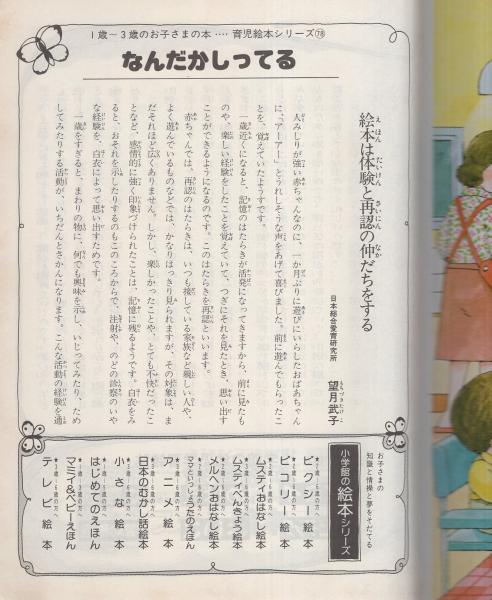 1歳〜3歳のお子さまの本‥‥育児絵本シリーズ㊆
なんだかしってる
絵本は体験と再認の仲だちをする
日本総合愛育研究所
望月武子
人みしりが強い赤ちゃんなのに、一か月ぶりに遊びにいらしたおばあちゃん
に、「アーアー」とうれしそうな声をあげて喜びました。前に遊んでもらったこ
とを、覚えていたようです。
一歳近くになると、記憶のはたらきが活発になってきますから、前に見たも
のや、楽しい経験をしたことを覚えていて、つぎにそれを見たとき、思い出す
ことができるようになるのです。このはたらきを再認といいます。
赤ちゃんでは、再認のはたらきは、いつも接している家族など親しい人や、
よく遊んでいるものなどでは、かなりはっきり見られますが、その対象は、ま
だそれほど広くありません。しかし、楽しかったことや、とても不快だったこ
となど、感情的に強く印象づけられたことは、記憶に残るようです。白衣をみ
ると、おそれを示したりするのもこのころからで、注射や、のどの診察のいや
な経験を、白衣によって思い出すためです。
一歳をすぎると、まわりの物に、何でも興味を示し、いじってみたり、ため
してみたりする活動が、いちだんとさかんになります。こんな活動の経験を通
お子さまの
知識と情操と夢をそだてる
小学館の絵本シリーズ
ピクシー絵本
ピコリー絵本
ムスティおはなし絵本
ムスティべんきょう絵本
メルヘンおはなし絵本
ママといっしょうたのえほん
アニメ絵本
日本のむかし話絵本
小さな絵本
はじめてのえほん
マミイ&ベビーえほん
テレビ絵本